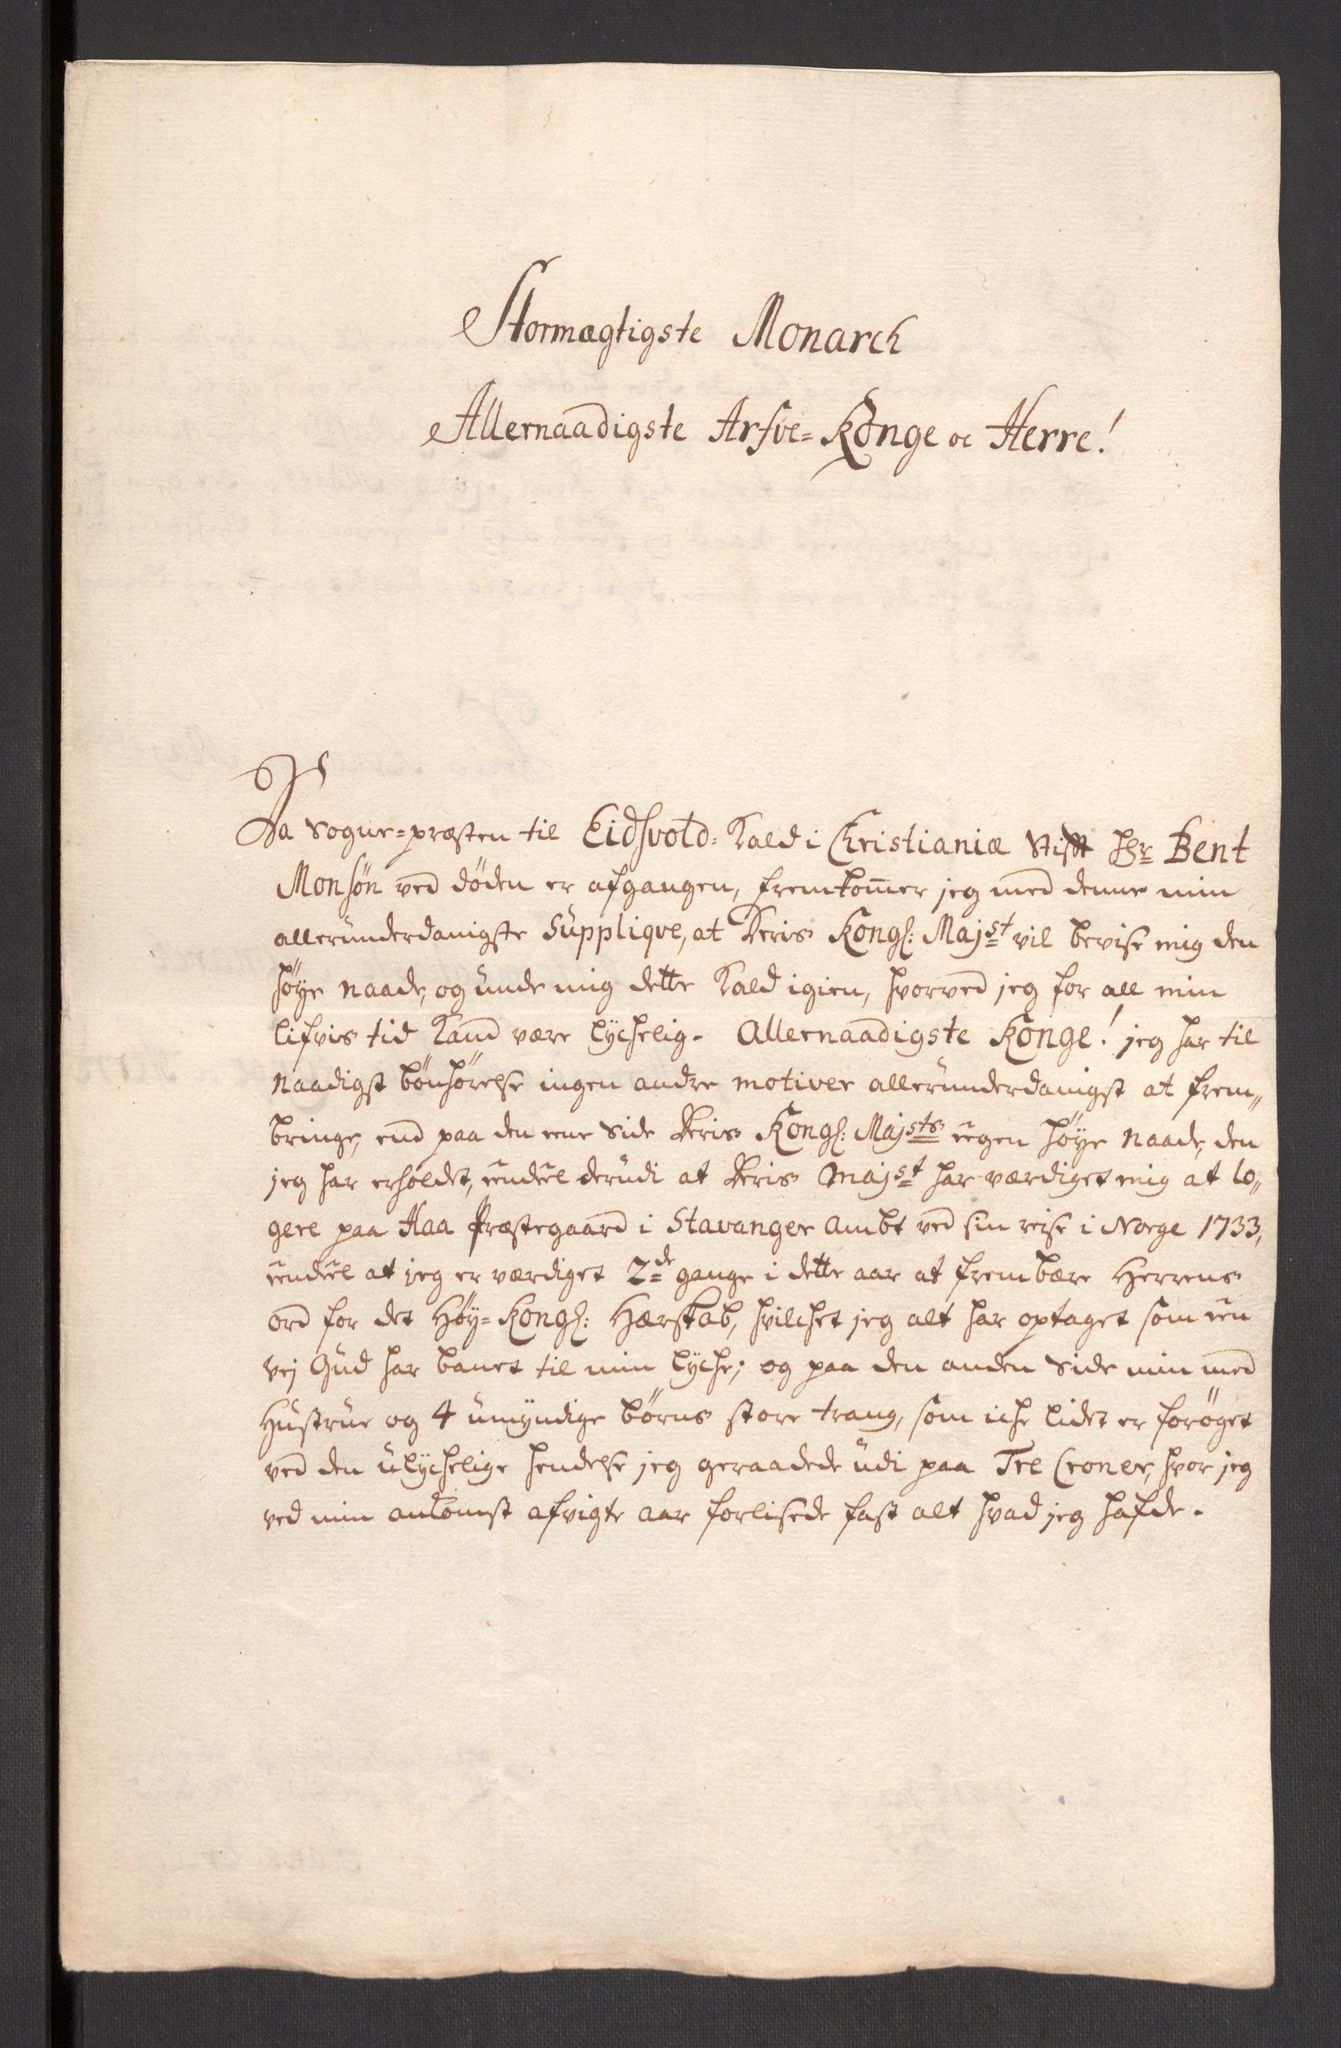 Stormægtigste Monarch
Allernaadigste Arfve=Konge oc Herre!
Da Sogne=præsten til Eidsvold=Kald i Christianiæ Stifft Hr Bent
Monsøn ved døden er afgangen, fremkom̅er jeg med denne min
allerunderdanigste Supplique, at Deris Kongl: Majst vil bevise mig den
høye naade, og unde mig dette Kald igien, hvorved jeg for all min
lifvis tid Kand være lychelig. Allernaadigste Konge! jeg har til
naadigst bønhørelse ingen andre motiver allerunderdanigst at frem„
bringe, end paa den eene Side Deris Kongl: Majsts egen høye naade, den
jeg har erholdet, eendeel derudi at Deris Majst har værdiget mig at lo„
gere paa Haa Præstegaard i Stavanger Ambt ved sin reise i Norge 1733,
eendeel at jeg er værdiget 2de gange i dette aar at frembære Herrens
ord for det Høy=Kongl: Hærskab, hvilchet jeg alt har optaget som een
vej Gud har banet til min lyche; og paa den anden Side min med
Hustrue og 4 umyndige børns store trang, som iche lidet er forøget
ved den ulychelige hendelse jeg geraadede udi paa Tre Croner, hvor jeg
ved min ankomst afvigte aar forlisede fast alt hvad jeg hafde.